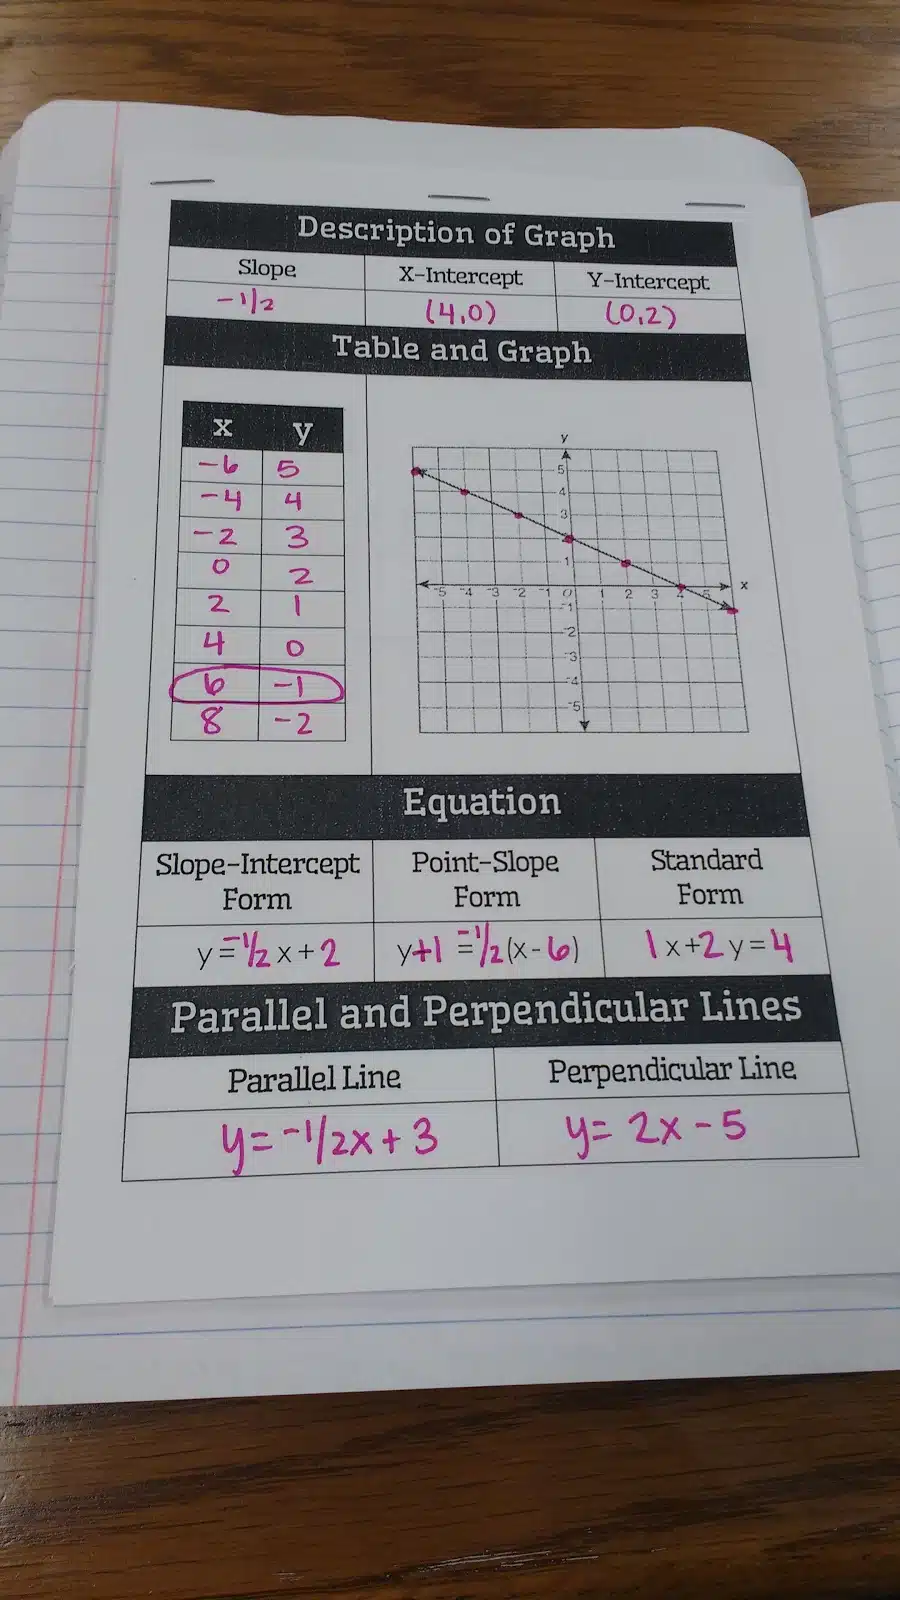 Description of Graph
Slope X-Intercept Y-Intercept
-1/2 (4,0) (0,2)
Table and Graph
x y
-6 5
-4 4
-2 3
0 2
2 1
4 0
6 -1
8 -2
y
5
4
3
2
1
-5 -4 -3 -2 -1 0 1 2 3 4 5 x
-1
-2
-3
-4
-5
Equation
Slope-Intercept Form
Point-Slope Form
Standard Form
y=-1/2x+2 y+1=-1/2(x-6) 1x+2y=4
Parallel and Perpendicular Lines
Parallel Line Perpendicular Line
y=-1/2x+3 y=2x-5